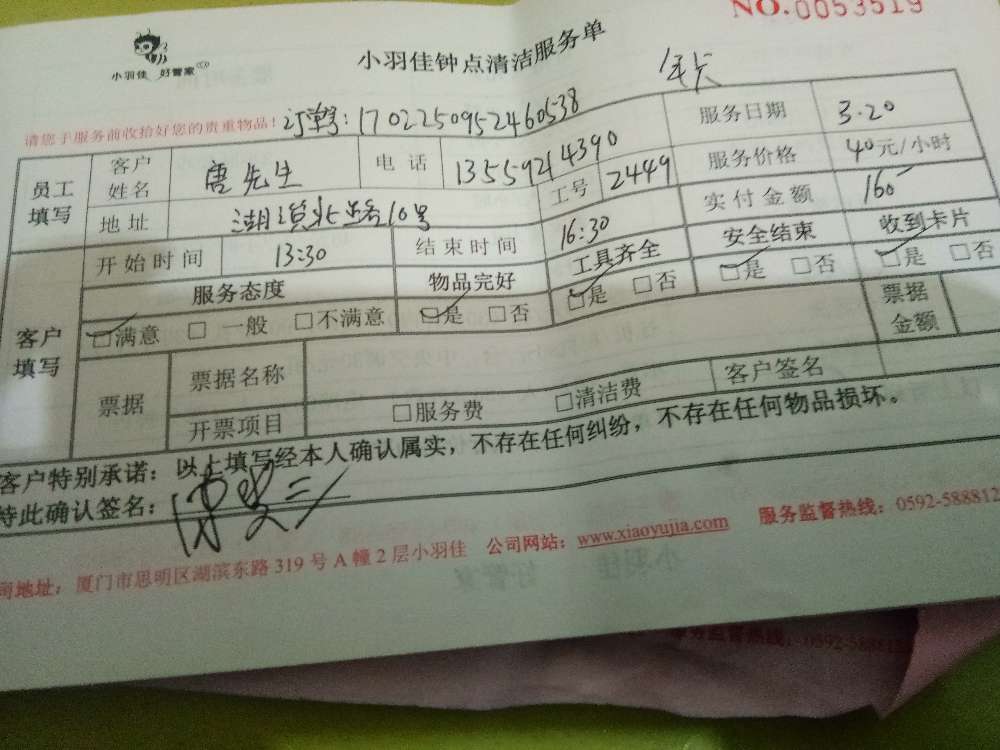 NO.0053519
小羽佳 好管家
小羽佳钟点清洁服务单
年卡
请您于服务前收拾好您的贵重物品！ 订单号：1702250952460538
员工填写 客户姓名 唐先生 电话 13559214390 服务日期 3.20
工号 2449 服务价格 40元/小时
地址 湖滨北路10号 实付金额 160
客户填写 开始时间 13:30 结束时间 16:30 安全结束 收到卡片
服务态度 物品完好 工具齐全 □是 □否 □是 □否
□满意 □一般 □不满意 □是 □否 □是 □否 票据金额
票据 票据名称 客户签名
开票项目 □服务费 □清洁费
客户特别承诺：以上填写经本人确认属实，不存在任何纠纷，不存在任何物品损坏。
特此确认签名：
司地址：厦门市思明区湖滨东路319号A幢2层小羽佳 公司网站：www.xiaoyujia.com 服务监督热线：0592-588812
小羽佳 好管家
务监督热线：0592-588812